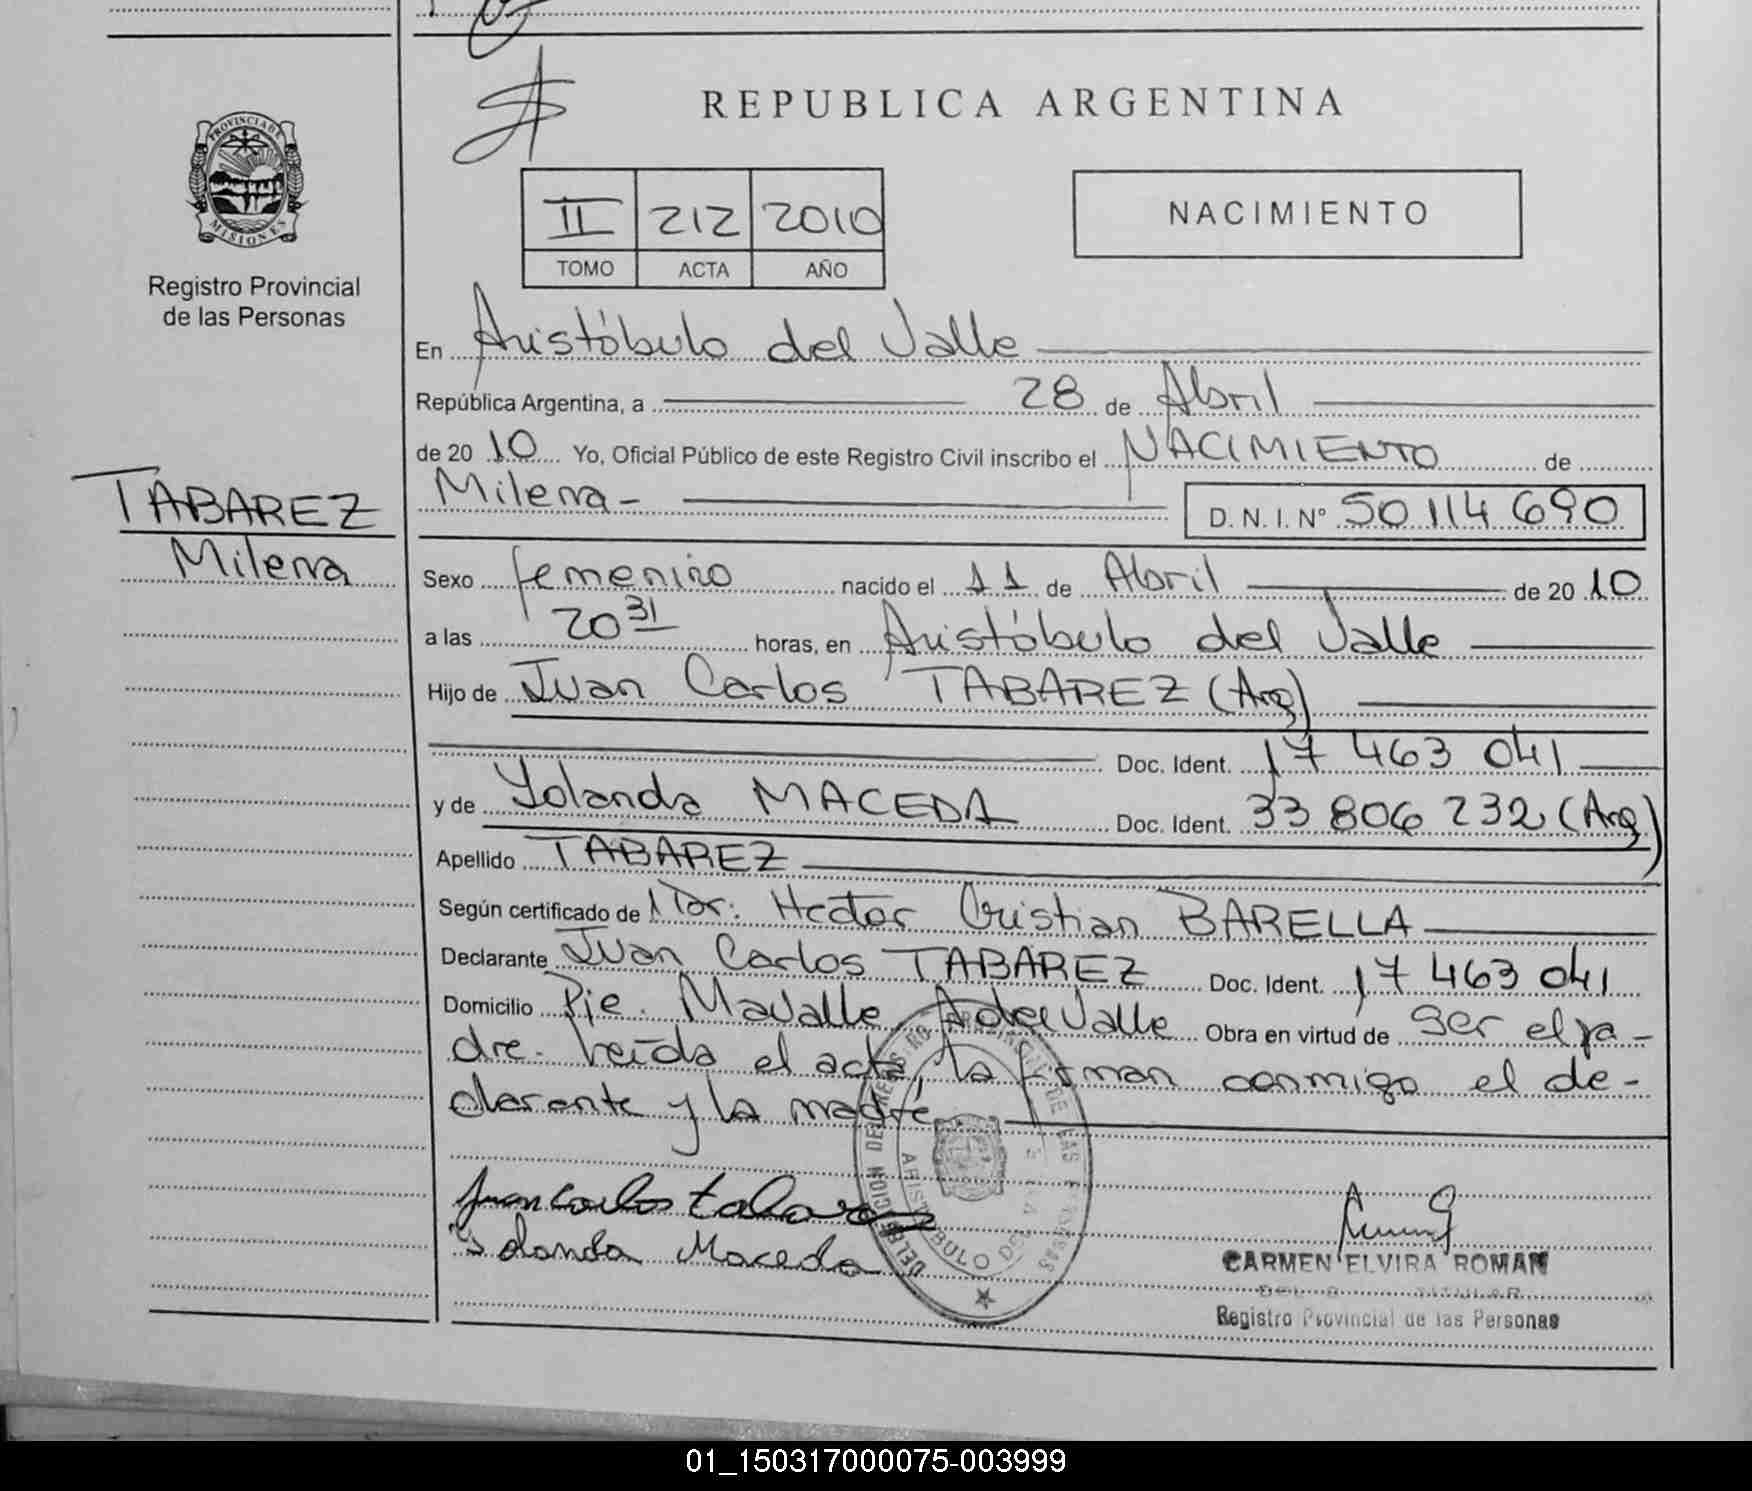 REPUBLICA ARGENTINA
PROVINCIA DE
MISIONES
Registro Provincial
de las Personas
II 212 2010
TOMO ACTA AÑO
NACIMIENTO
En Aristóbulo del Valle
República Argentina, a 28 de Abril
de 20 10 Yo, Oficial Público de este Registro Civil inscribo el NACIMIENTO de
Milena-
D.N.I. Nº 50 114 690
TABAREZ
Milena
Sexo femenino nacido el 11 de Abril de 20 10
a las 20 31 horas, en Aristóbulo del Valle
Hijo de Juan Carlos TABAREZ (Arg)
Doc. Ident. 17 463 041
y de Yolanda MACEDA Doc. Ident. 33 806 232 (Arg)
Apellido TABAREZ
Según certificado de Dr. Hector Cristian BARELLA
Declarante Juan Carlos TABAREZ Doc. Ident. 17 463 041
Domicilio Pje. Mavalle A del Valle Obra en virtud de ser el pa-
dre. Leída el acta, la firman conmigo el de-
clarante y la madre.
Juan Carlos tabarez
Yolanda Maceda
CARMEN ELVIRA ROMAN
TITULAR
Registro Provincial de las Personas
01_150317000075-003999